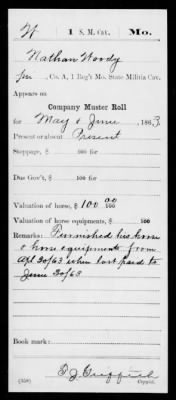 W 1 S. M. Cav. Mo.
Nathan Woody
Co. A, 1 Reg't Mo. State Militia Cav.
Appears on
Company Muster Roll
for May & June, 1863.
Present or absent Present
Stoppage, $ 100 for
Due Gov't, $ 100 for
Valuation of horse, $ 100 00/100
Valuation of horse equipments, $ 100
Remarks: Furnished his horse
& horse equipments from
Apl 30/63 when last paid to
June 30/63
Book mark:
(358) Copyist.